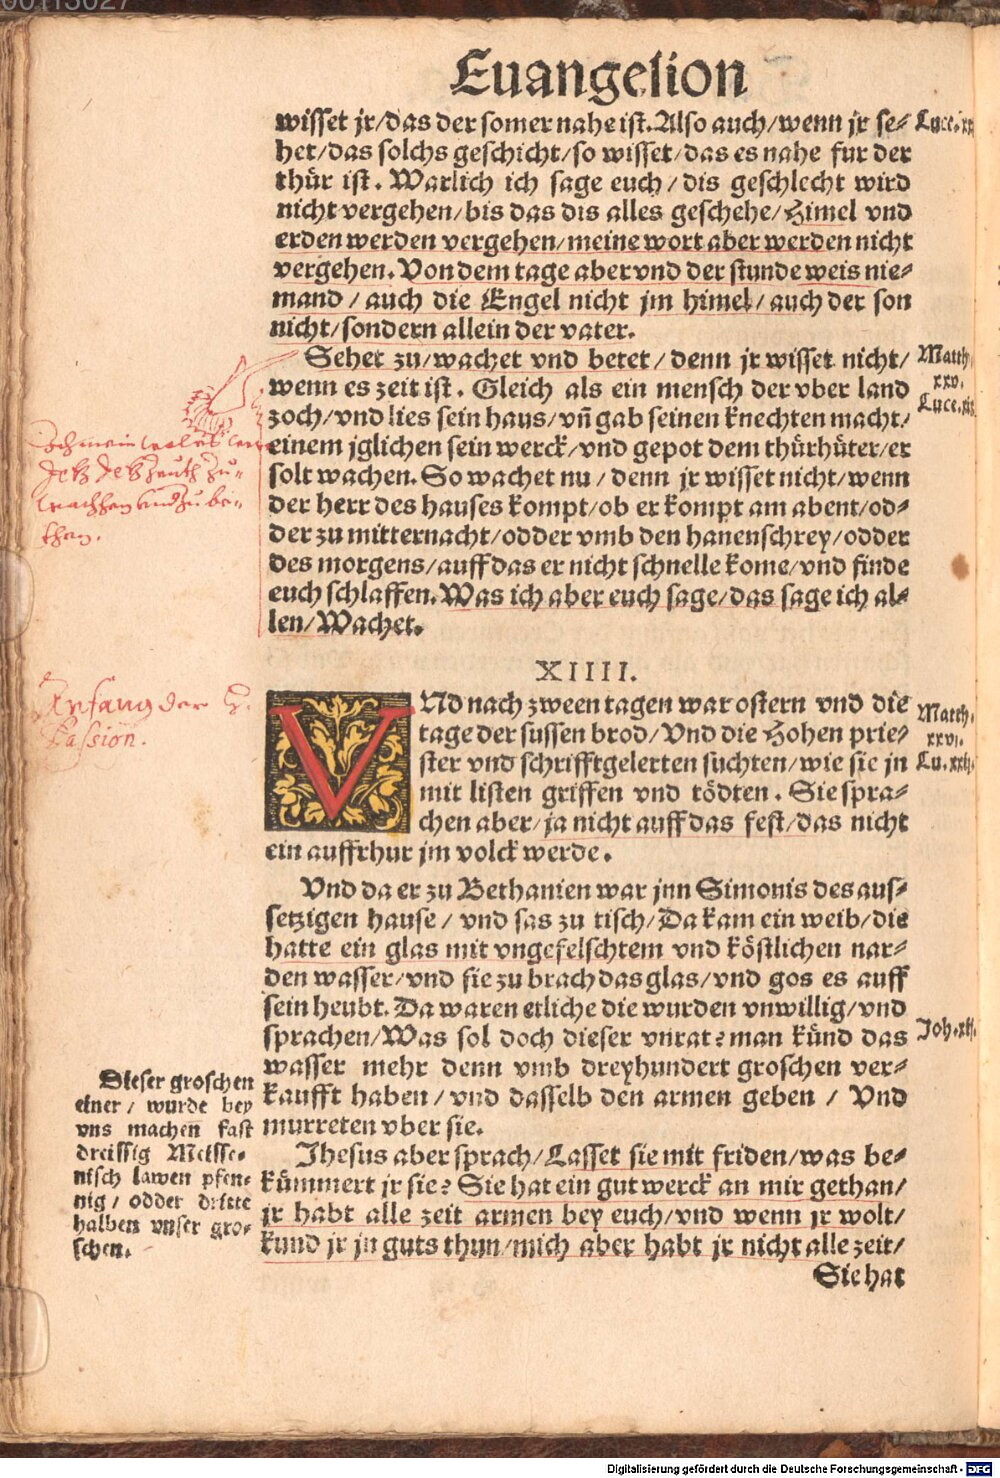 00113027
Euangelion
wisset jr/das der somer nahe ist. Also auch/wenn jr se⸗
het/das solchs geschicht/so wisset/das es nahe fur der
thür ist. Warlich ich sage euch/dis geschlecht wird
nicht vergehen/bis das dis alles geschehe/Himel vnd
erden werden vergehen/meine wort aber werden nicht
vergehen. Von dem tage aber vnd der stunde weis nie⸗
mand/auch die Engel nicht jm himel/auch der son
nicht/sondern allein der vater.
Sehet zu/wachet vnd betet/denn jr wisset nicht/
wenn es zeit ist. Gleich als ein mensch der vber land
zoch/vnd lies sein haus/vn̄ gab seinen knechten macht/
einem jglichen sein werck/vnd gepot dem thürhüter/er
solt wachen. So wachet nu/denn jr wisset nicht/wenn
der herr des hauses kompt/ob er kompt am abent/od⸗
der zu mitternacht/odder vmb den hanenschrey/odder
des morgens/auff das er nicht schnelle kome/vnd finde
euch schlaffen. Was ich aber euch sage/das sage ich al⸗
len/Wachet.
Luce.
Matth.
xxv.
Luce.
XIIII.
VNd nach zween tagen war ostern vnd die
tage der sussen brod/Vnd die Hohen prie⸗
ster vnd schrifftgelerten suchten/wie sie jn
mit listen griffen vnd tödten. Sie spra⸗
chen aber/ja nicht auff das fest/das nicht
ein auffrhur jm volck werde.
Anfang der
Passion.
Matth.
xxvj.
Lu.
Vnd da er zu Bethanien war jnn Simonis des aus⸗
setzigen hause/vnd sas zu tisch/Da kam ein weib/die
hatte ein glas mit vngefelschtem vnd köstlichen nar⸗
den wasser/vnd sie zu brach das glas/vnd gos es auff
sein heubt. Da waren etliche die wurden vnwillig/vnd
sprachen/Was sol doch dieser vnrat? man künd das
wasser mehr denn vmb dreyhundert groschen ver⸗
kaufft haben/vnd dasselb den armen geben/Vnd
murreten vber sie.
Joh.
Dieser groschen
einer/wurde bey
vns machen fast
dreissig Meisse⸗
nisch lawen pfen⸗
nig/odder dritte
halben vnser gro⸗
schen.
Jhesus aber sprach/Lasset sie mit friden/was be⸗
kümmert jr sie? Sie hat ein gut werck an mir gethan/
jr habt alle zeit armen bey euch/vnd wenn jr wolt/
kund jr jn guts thun/mich aber habt jr nicht alle zeit/
Sie hat
Digitalisierung gefördert durch die Deutsche Forschungsgemeinschaft - DFG